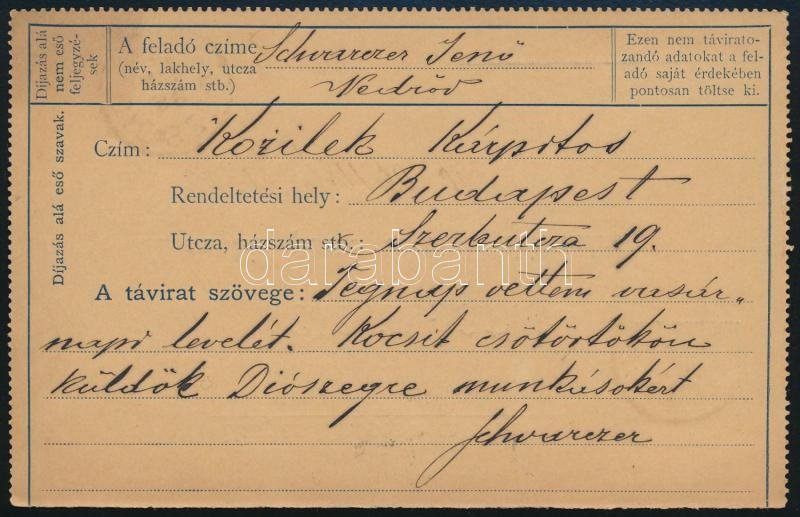 Díjazás alá
nem eső
feljegyzé-
sek
A feladó czíme Schwarczer Jenő
(név, lakhely, utcza
házszám stb.)
Ezen nem távirato-
zandó adatokat a fel-
adó saját érdekében
pontosan töltse ki.
Díjazás alá eső szavak.
Czím: Kozilek Kárpitos
Rendeltetési hely: Budapest
Utcza, házszám stb.: Szerbutcza 19.
darabanth
A távirat szövege: Tegnap vettem vasár„
napi levelét. Kocsit csötörtökön
küldök Diószegre munkásokért
Schwarczer